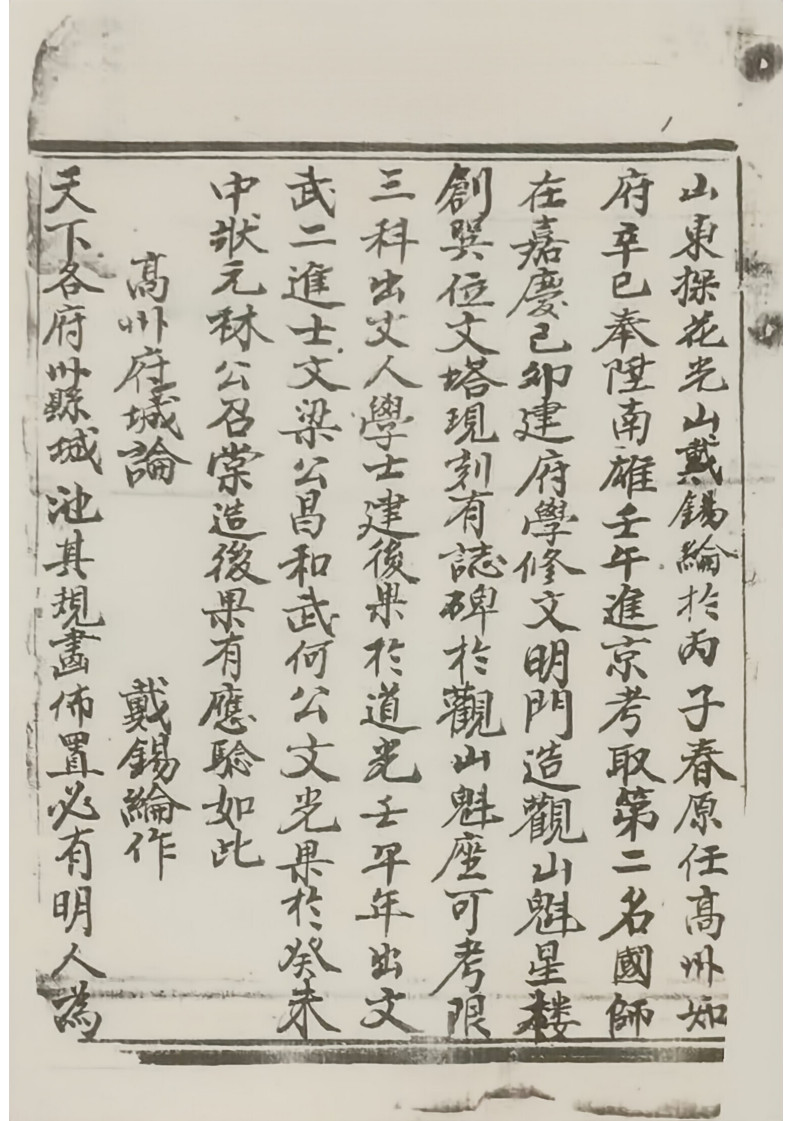 山東探花光山戴錫綸於丙子春原任高州知
府辛巳奉陞南雄壬午進京考取第二名國師
在嘉慶己卯建府學修文明門造觀山魁星樓
創巽位文塔現刻有誌碑於觀山魁座可考限
三科出文人學士建後果於道光壬午年出文
武二進士文梁公昌和武何公文光果於癸未
中狀元林公召棠造後果有應驗如此
高州府城論 戴錫綸作
天下各府州縣城池其規畫佈置必有明人為